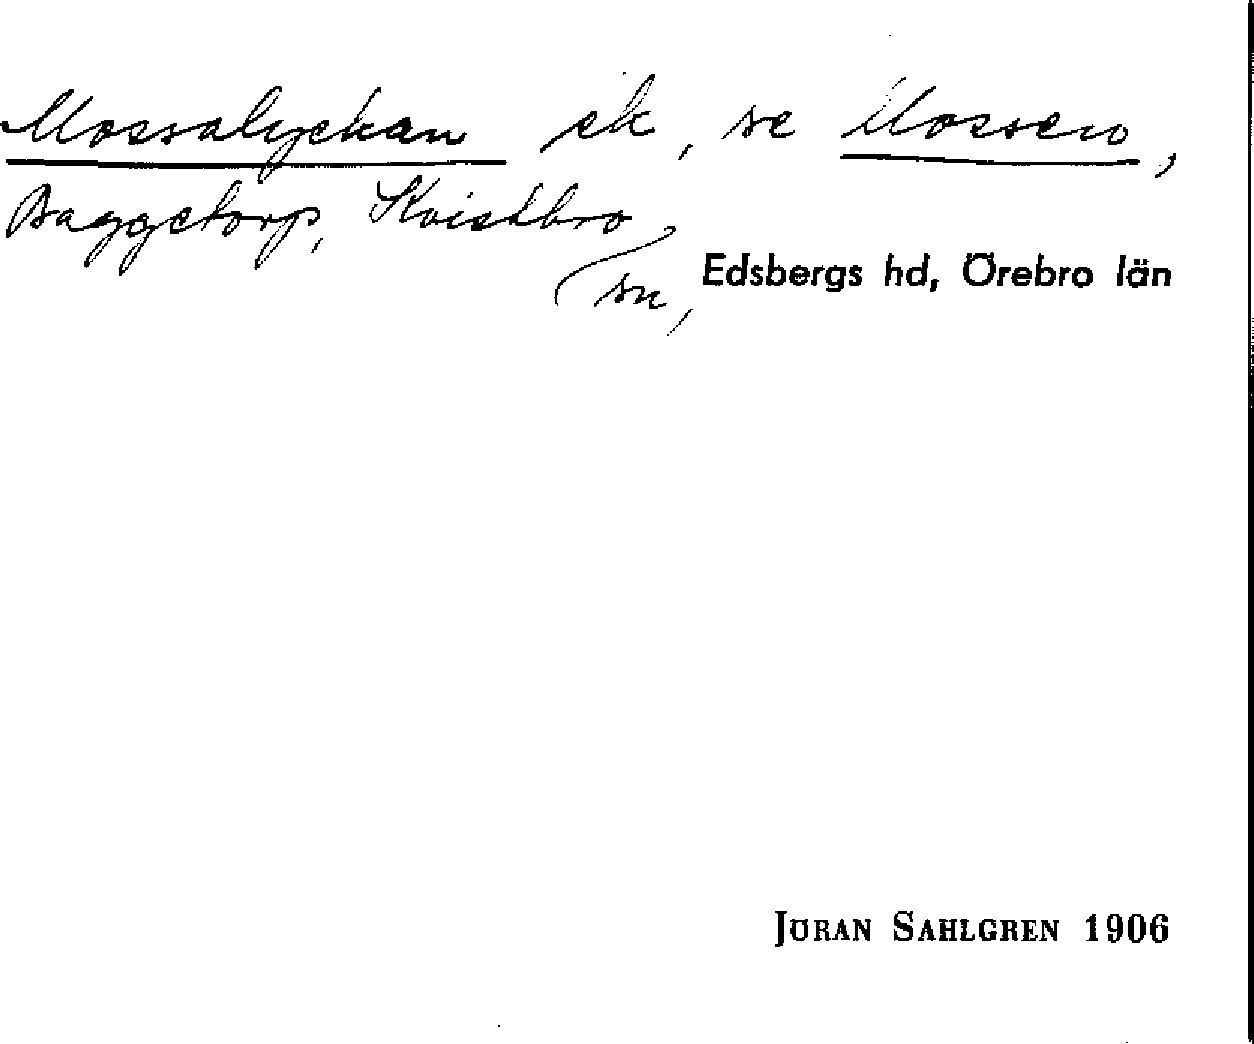 Mossalyckan ek, se Mossen,
Baggetorp, Kvistbro
sn, Edsbergs hd, Örebro län
JÖRAN SAHLGREN 1906